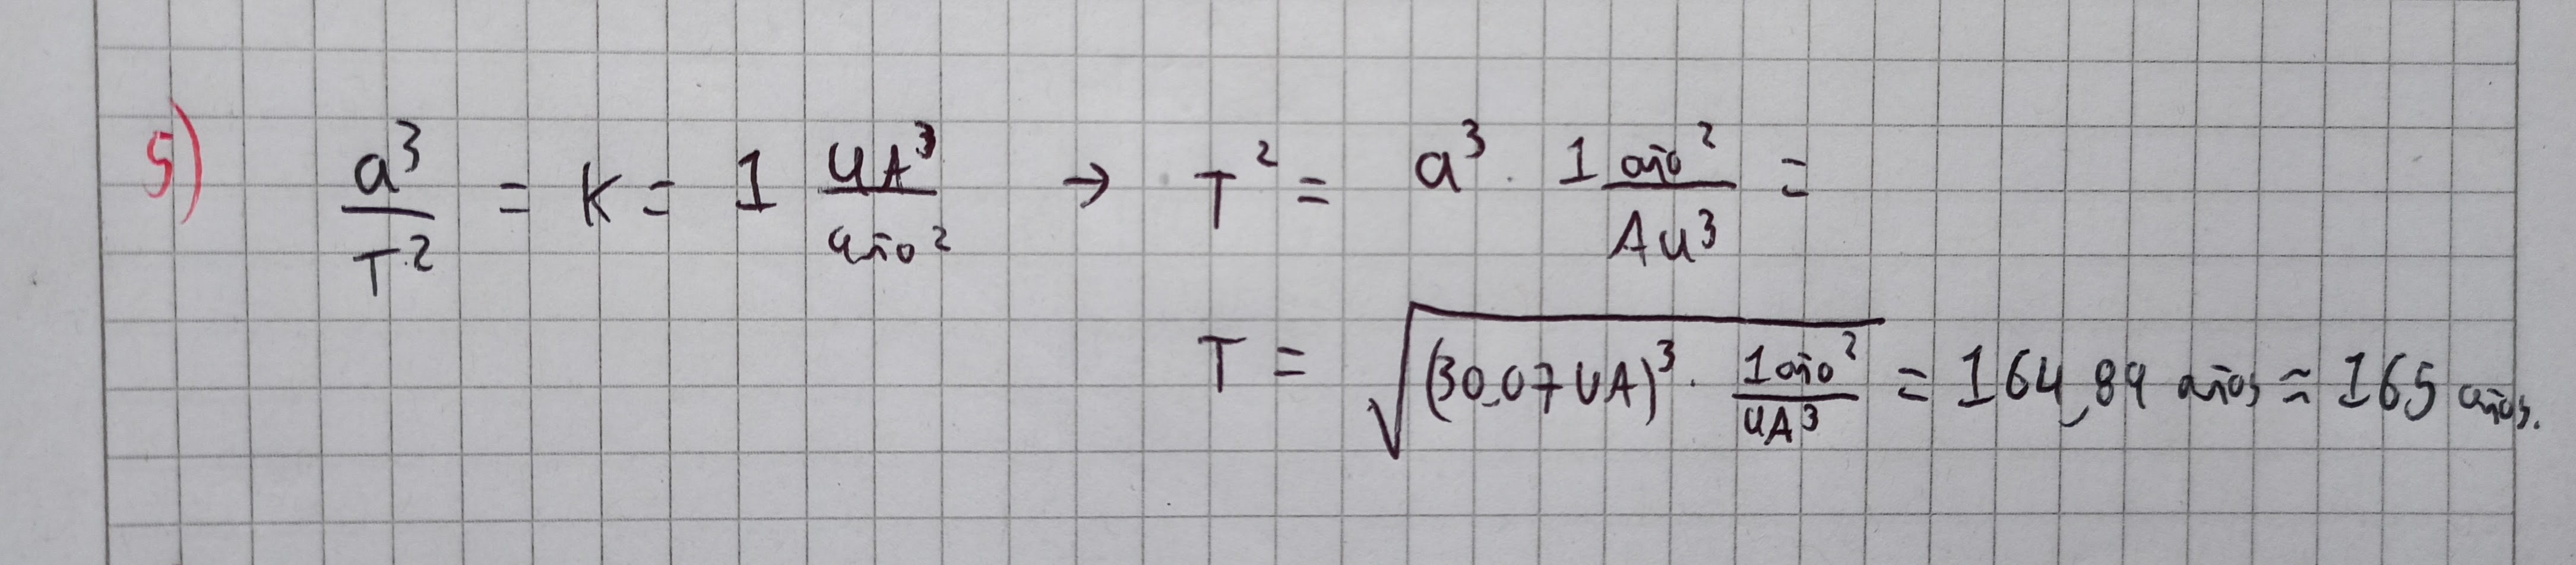 5) a³/T² = K = 1 UA³/año² → T² = a³ · 1 año²/Au³ =
T = √((30.07 UA)³ · 1 año²/UA³) = 164,89 años ≈ 165 años.